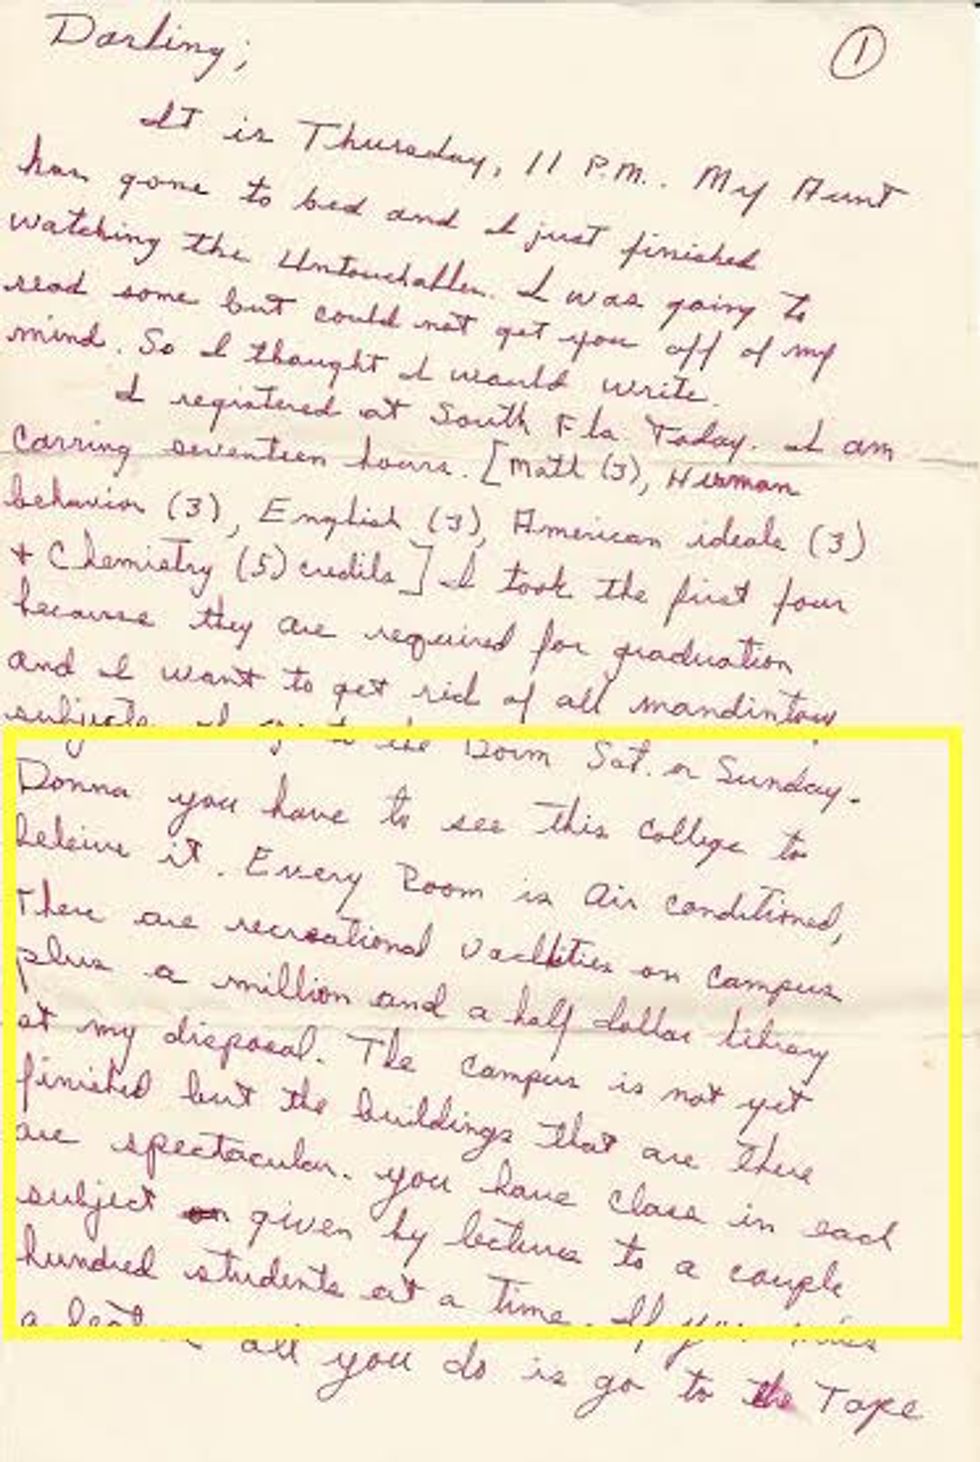 Darling;
①
It is Thursday, 11 P.M.. My Aunt
has gone to bed and I just finished
watching the Untouchables. I was going to
read some but could not get you off of my
mind. So I thought I would write.
I registered at South Fla. Today. I am
Carring seventeen hours. [Math (3), Human
behavior (3), English (3), American ideals (3)
+ Chemistry (5) credits] I took the first four
because they are required for graduation
and I want to get rid of all mandintory
subjects. I
to the Dorm Sat. or Sunday.
Donna you have to see this College to
beleive it. Every Room is Air conditioned,
There are recreational vacilities on Campus
plus a million and a half dollar library
at my disposal. The campus is not yet
finished but the buildings that are there
are spectacular. you have class in each
subject given by lectures to a couple
hundred students at a time. If you miss
a all you do is go to the Tape